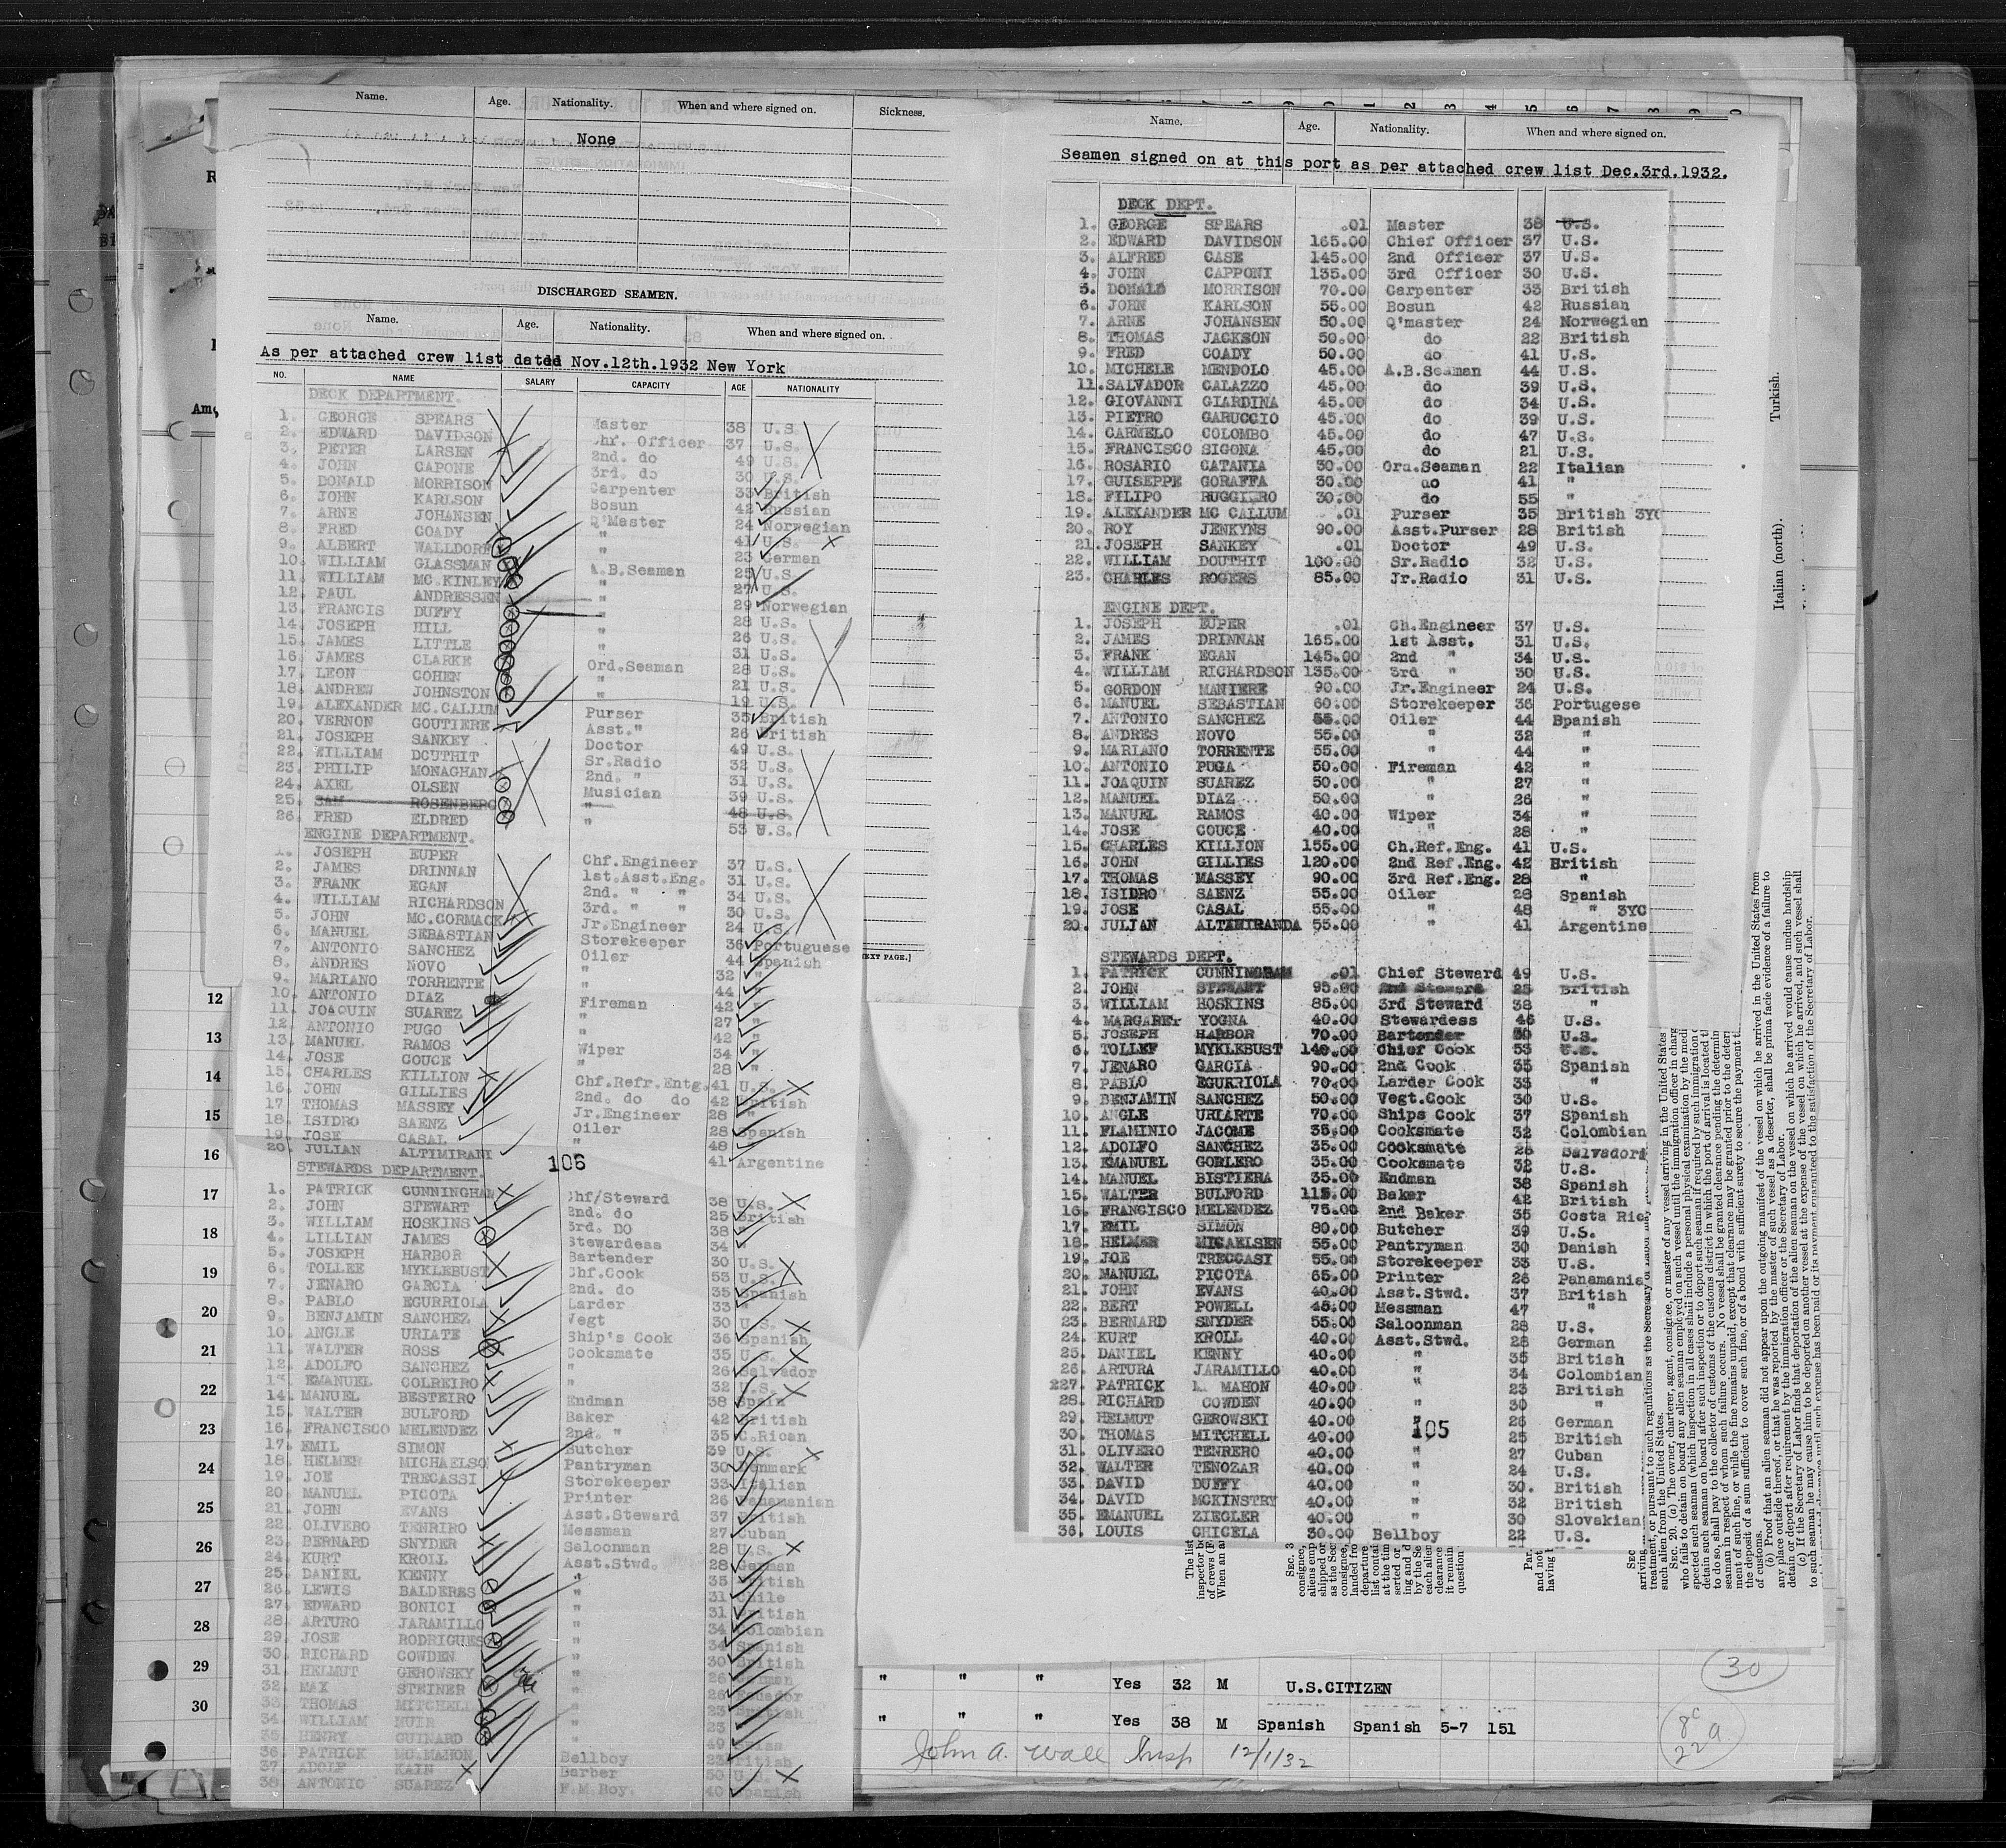 Name. Age. Nationality. When and where signed on. Sickness.
None
DISCHARGED SEAMEN.
Name. Age. Nationality. When and where signed on.
As per attached crew list dated Nov.12th.1932 New York
NO. NAME SALARY CAPACITY AGE NATIONALITY
DECK DEPARTMENT.
1. GEORGE SPEARS Master 38 U.S.
2. EDWARD DAVIDSON Chf. Officer 37 U.S.
3. PETER LARSEN 2nd. do 49 U.S.
4. JOHN CAPONE 3rd. do 30 U.S.
5. DONALD MORRISON Carpenter 33 British
6. JOHN KARLSON Bosun 42 Russian
7. ARNE JOHANSEN Q'Master 24 Norwegian
8. FRED COADY " 41 U.S.
9. ALBERT WALLDORF " 23 German
10. WILLIAM GLASSMAN A.B.Seaman 25 U.S.
11. WILLIAM MC.KINLEY " 27 U.S.
12. PAUL ANDRESSEN " 29 Norwegian
13. FRANCIS DUFFY " 28 U.S.
14. JOSEPH HILL " 26 U.S.
15. JAMES LITTLE " 31 U.S.
16. JAMES CLARKE Ord.Seaman 28 U.S.
17. LEON COHEN " 21 U.S.
18. ANDREW JOHNSTON " 19 U.S.
19. ALEXANDER MC.CALLUM Purser 35 British
20. VERNON GOUTIERE Asst." 26 British
21. JOSEPH SANKEY Doctor 49 U.S.
22. WILLIAM DOUTHIT Sr.Radio 32 U.S.
23. PHILIP MONAGHAN 2nd. " 31 U.S.
24. AXEL OLSEN Musician 39 U.S.
25. SAM ROSENBERG " 48 U.S.
26. FRED ELDRED " 53 U.S.
ENGINE DEPARTMENT.
1. JOSEPH EUPER Chf.Engineer 37 U.S.
2. JAMES DRINNAN 1st.Asst.Eng. 31 U.S.
3. FRANK EGAN 2nd. " " 34 U.S.
4. WILLIAM RICHARDSON 3rd. " " 30 U.S.
5. JOHN MC.CORMACK Jr.Engineer 24 U.S.
6. MANUEL SEBASTIAN Storekeeper 36 Portuguese
7. ANTONIO SANCHEZ Oiler 44 Spanish
8. ANDRES NOVO " 32 "
9. MARIANO TORRENTE " 44 "
10. ANTONIO DIAZ Fireman 42 "
11. JOAQUIN SUAREZ " 27 "
12. ANTONIO PUGO " 42 "
13. MANUEL RAMOS Wiper 34 "
14. JOSE COUCE " 28 "
15. CHARLES KILLION Chf.Refr.Entg. 41 U.S.
16. JOHN GILLIES 2nd. do do 42 British
17. THOMAS MASSEY Jr.Engineer 28 "
18. ISIDRO SAENZ Oiler 28 Spanish
19. JOSE CASAL " 48 "
20. JULIAN ALTIMIRANI 41 Argentine
106
STEWARDS DEPARTMENT.
1. PATRICK CUNNINGHAM Chf/Steward 38 U.S.
2. JOHN STEWART 2nd. do 25 British
3. WILLIAM HOSKINS 3rd. DO 38 "
4. LILLIAN JAMES Stewardess 34 "
5. JOSEPH HARBOR Bartender 30 U.S.
6. TOLLEE MYKLEBUST Chf.Cook 53 U.S.
7. JENARO GARCIA 2nd. do 35 Spanish
8. PABLO EGURRIOLA Larder 33 "
9. BENJAMIN SANCHEZ Vegt 30 U.S.
10. ANGLE URIATE Ship's Cook 36 Spanish
11. WALTER ROSS Cooksmate 35 U.S.
12. ADOLFO SANCHEZ " 26 Salvador
13. EMANUEL COLREIRO " 32 U.S.
14. MANUEL BESTEIRO Endman 38 Spain
15. WALTER BULFORD Baker 42 British
16. FRANCISCO MELENDEZ 2nd. " 35 C.Rican
17. EMIL SIMON Butcher 39 U.S.
18. HELMER MICHAELSO Pantryman 30 Denmark
19. JOE TRECASSI Storekeeper 33 Italian
20. MANUEL PICOTA Printer 26 Panamanian
21. JOHN EVANS Asst.Steward 37 British
22. OLIVERO TENRIRO Messman 27 Cuban
23. BERNARD SNYDER Saloonman 28 U.S.
24. KURT KROLL Asst.Stwd. 28 German
25. DANIEL KENNY " 35 British
26. LEWIS BALDERES " 31 Chile
27. EDWARD BONICI " 31 British
28. ARTURO JARAMILLO " 34 Colombian
29. JOSE RODRIGUES " 34 Spanish
30. RICHARD COWDEN " 30 British
31. HELMUT GEROWSKY " 26 German
32. MAX STEINER " 26 Ecuador
33. THOMAS MITCHELL " 23 British
34. WILLIAM MUIR " 23
35. HENRY GUINARD " 49 Swiss
36. PATRICK MC.MAHON Bellboy 23 British
37. ADOLF KAIN Barber 50 U.S.
38. ANTONIO SUAREZ F.M.Boy. 40 Spanish
12
13
14
15
16
17
18
19
20
21
22
23
24
25
26
27
28
29
30
EXT PAGE.]
Name. Age. Nationality. When and where signed on.
Seamen signed on at this port as per attached crew list Dec.3rd.1932.
DECK DEPT.
1. GEORGE SPEARS .01 Master 38 U.S.
2. EDWARD DAVIDSON 165.00 Chief Officer 37 U.S.
3. ALFRED CASE 145.00 2nd Officer 37 U.S.
4. JOHN CAPPONI 135.00 3rd Officer 30 U.S.
5. DONALD MORRISON 70.00 Carpenter 33 British
6. JOHN KARLSON 55.00 Bosun 42 Russian
7. ARNE JOHANSEN 50.00 Q'master 24 Norwegian
8. THOMAS JACKSON 50.00 do 22 British
9. FRED COADY 50.00 do 41 U.S.
10. MICHELE MENDOLO 45.00 A.B.Seaman 44 U.S.
11. SALVADOR CALAZZO 45.00 do 39 U.S.
12. GIOVANNI GIARDINA 45.00 do 34 U.S.
13. PIETRO GARUCCIO 45.00 do 39 U.S.
14. CARMELO COLOMBO 45.00 do 47 U.S.
15. FRANCISCO SIGONA 45.00 do 21 U.S.
16. ROSARIO CATANIA 30.00 Ord.Seaman 22 Italian
17. GUISEPPE GORAFFA 30.00 do 41 "
18. FILIPO RUGGIERO 30.00 do 55 "
19. ALEXANDER MC CALLUM .01 Purser 35 British 3YC
20. ROY JENKYNS 90.00 Asst.Purser 28 British
21. JOSEPH SANKEY .01 Doctor 49 U.S.
22. WILLIAM DOUTHIT 100.00 Sr.Radio 32 U.S.
23. CHARLES ROGERS 85.00 Jr.Radio 31 U.S.
ENGINE DEPT.
1. JOSEPH EUPER .01 Ch.Engineer 37 U.S.
2. JAMES DRINNAN 165.00 1st Asst. 31 U.S.
3. FRANK EGAN 145.00 2nd " 34 U.S.
4. WILLIAM RICHARDSON 135.00 3rd " 30 U.S.
5. GORDON MANIERE 90.00 Jr.Engineer 24 U.S.
6. MANUEL SEBASTIAN 60.00 Storekeeper 36 Portugese
7. ANTONIO SANCHEZ 55.00 Oiler 44 Spanish
8. ANDRES NOVO 55.00 " 32 "
9. MARIANO TORRENTE 55.00 " 44 "
10. ANTONIO PUGA 50.00 Fireman 42 "
11. JOAQUIN SUAREZ 50.00 " 27 "
12. MANUEL DIAZ 50.00 " 26 "
13. MANUEL RAMOS 40.00 Wiper 34 "
14. JOSE COUCE 40.00 " 28 "
15. CHARLES KILLION 155.00 Ch.Ref.Eng. 41 U.S.
16. JOHN GILLIES 120.00 2nd Ref.Eng. 42 British
17. THOMAS MASSEY 90.00 3rd Ref.Eng. 28 "
18. ISIDRO SAENZ 55.00 Oiler 28 Spanish
19. JOSE CASAL 55.00 " 48 " 3YC
20. JULIAN ALTIMIRANDA 55.00 " 41 Argentine
STEWARDS DEPT.
1. PATRICK CUNNINGHAM .01 Chief Steward 49 U.S.
2. JOHN STEWART 95.00 2nd Steward 25 British
3. WILLIAM HOSKINS 85.00 3rd Steward 38 "
4. MARGARET YOGNA 40.00 Stewardess 46 U.S.
5. JOSEPH HARBOR 70.00 Bartender 30 U.S.
6. TOLLEF MYKLEBUST 140.00 Chief Cook 53 U.S.
7. JENARO GARCIA 90.00 2nd Cook 35 Spanish
8. PABLO EGURRIOLA 70.00 Larder Cook 33 "
9. BENJAMIN SANCHEZ 50.00 Vegt.Cook 30 U.S.
10. ANGLE URIARTE 70.00 Ships Cook 37 Spanish
11. FLAMINIO JACOME 35.00 Cooksmate 32 Colombian
12. ADOLFO SANCHEZ 35.00 Cooksmate 26 Salvadora
13. EMANUEL GORLERO 35.00 Cooksmate 32 U.S.
14. MANUEL BISTIERA 35.00 Endman 38 Spanish
15. WALTER BULFORD 115.00 Baker 42 British
16. FRANCISCO MELENDEZ 75.00 2nd Baker 35 Costa Ric
17. EMIL SIMON 80.00 Butcher 39 U.S.
18. HELMER MICAELSEN 55.00 Pantryman 30 Danish
19. JOE TRECCASI 55.00 Storekeeper 33 U.S.
20. MANUEL PICOTA 65.00 Printer 26 Panamania
21. JOHN EVANS 40.00 Asst.Stwd. 37 British
22. BERT POWELL 45.00 Messman 47 "
23. BERNARD SNYDER 55.00 Saloonman 28 U.S.
24. KURT KROLL 40.00 Asst.Stwd. 28 German
25. DANIEL KENNY 40.00 " 35 British
26. ARTURA JARAMILLO 40.00 " 34 Colombian
227. PATRICK MAHON 40.00 " 23 British
28. RICHARD COWDEN 40.00 " 30 "
29. HELMUT GEROWSKI 40.00 " 26 German
30. THOMAS MITCHELL 40.00 " 25 British
105
31. OLIVERO TENRERO 40.00 " 27 Cuban
32. WALTER TENOZAR 40.00 " 24 U.S.
33. DAVID DUFFY 40.00 " 30. British
34. DAVID MCKINSTRY 40.00 " 32 British
35. EMANUEL ZIEGLER 40.00 " 30 Slovakian
36. LOUIS CHICELA 30.00 Bellboy 22 U.S.
Italian (north). Turkish.
" " " Yes 32 M U.S.CITIZEN
" " " Yes 38 M Spanish Spanish 5-7 151
John A. Wall Insp 12/1/32
30
8c
22a